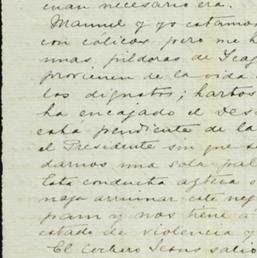 cuan necesario era.
Manuel y yo estamos
con cólicos, pero me h
unas píldoras de Icag
provienen de la vida
los disgustos; hartos
ha encajado el Desc
está pendiente de la
el Presidente sin que se
darnos una sola pal
Esta conducta
arruinar este neg
y nos tiene á
estado de violencia y
El Jesus salió